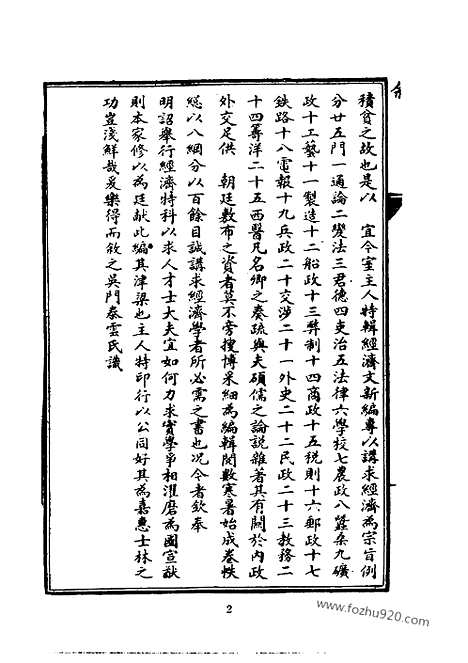 積貧之故也是以　宜今室主人特輯經濟文新編專以講求經濟為宗旨例
分廿五門一通論二變法三君德四吏治五法律六學校七農政八蠶桑九礦
政十工藝十一製造十二船政十三幣制十四商政十五稅則十六郵政十七
鐵路十八電報十九兵政二十交涉二十一外史二十二民政二十三教務二
十四籌洋二十五西醫凡名卿之奏疏與夫碩儒之論說雜著其有關於內政
外交足供　朝廷敷布之資者莫不旁搜博采細為編輯閱數寒暑始成卷帙
總以八綱分以百餘目誠講求經濟學者所必需之書也况令者欽奉
明詔舉行經濟特科以求人才士大夫宜如何力求實學爭相濯磨為國宣猷
則本家修以為廷獻此編其津梁也主人特印行以公同好其為嘉惠士林之
功豈淺鮮哉爰樂得而敘之吳門泰雲氏識
2
www.fozhu920.com